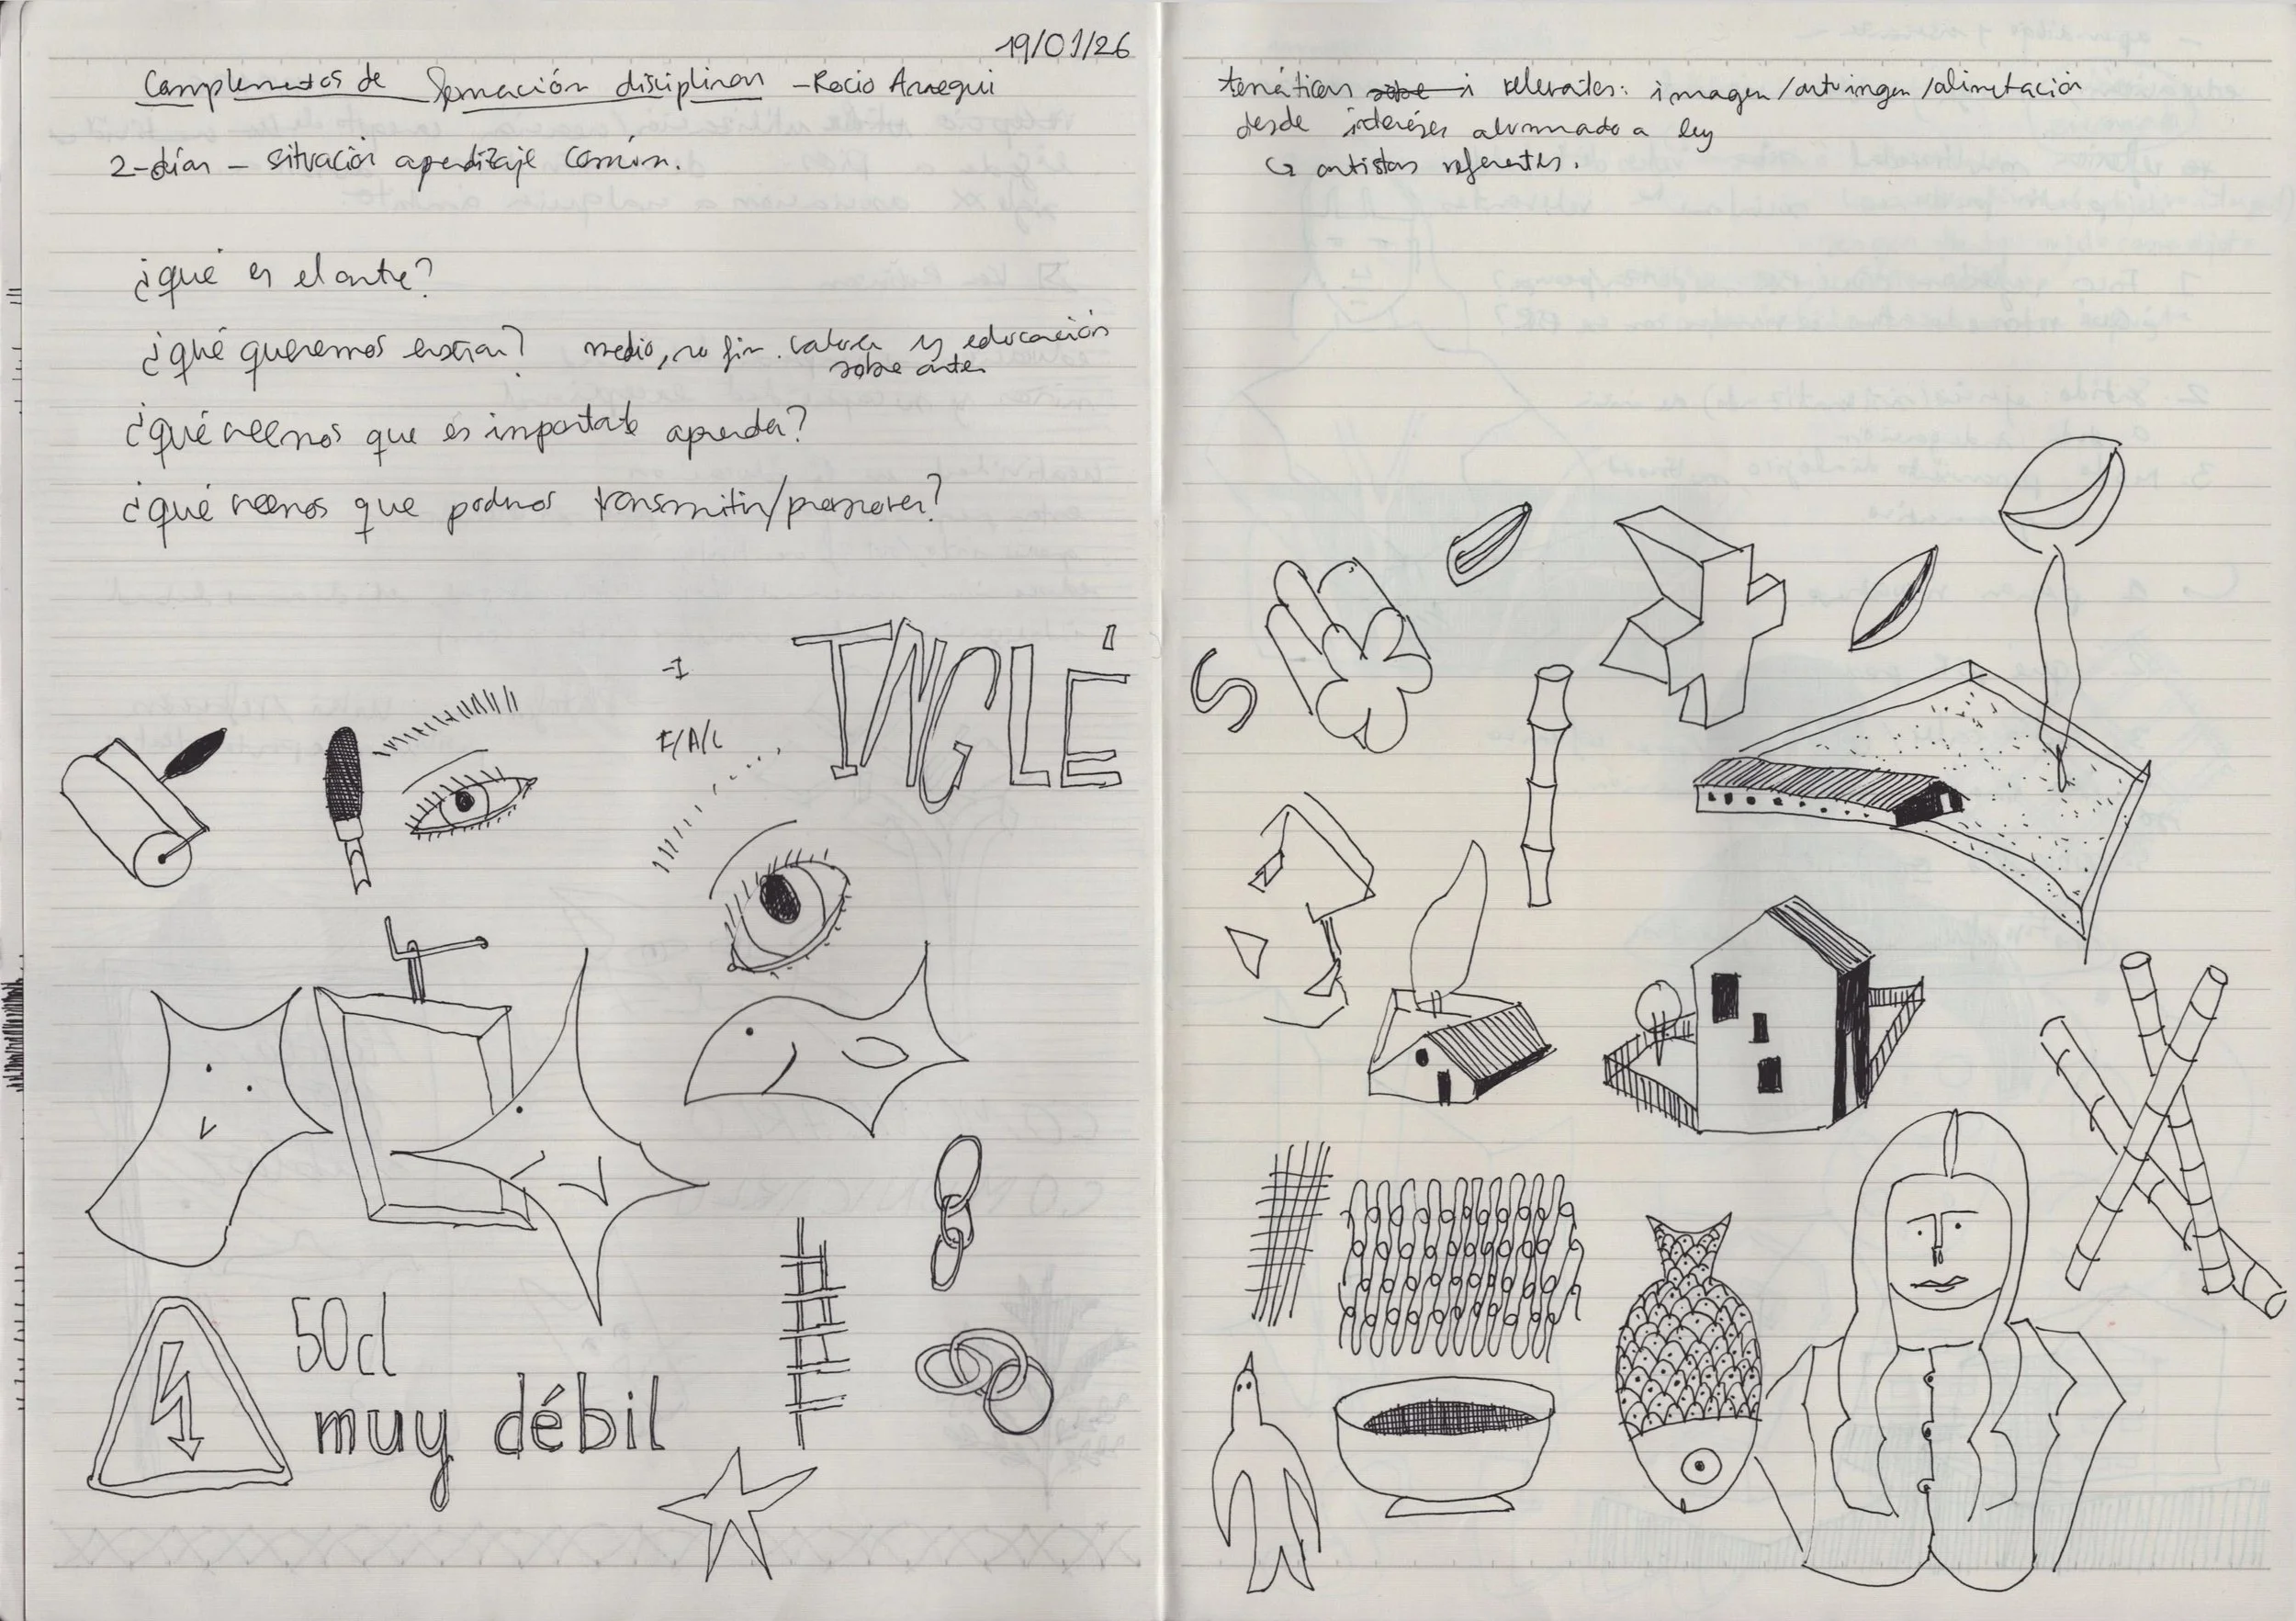 19/01/26
Complementos de formación disciplinar - Rocío Arregui
2-días - situación aprendizaje común.
¿qué es el arte?
¿qué queremos enseñar? medio, no fin. valores y educación
sobre artes
¿qué creemos que es importante aprenda?
¿qué creemos que podemos transmitir/promover?
-I
F/A/L
INGLÉ
S
50cl
muy débil
temáticas sobre i relevantes: imagen/autoimagen/alimentación
desde intereses alumnado a ley
↳ artistas referentes.